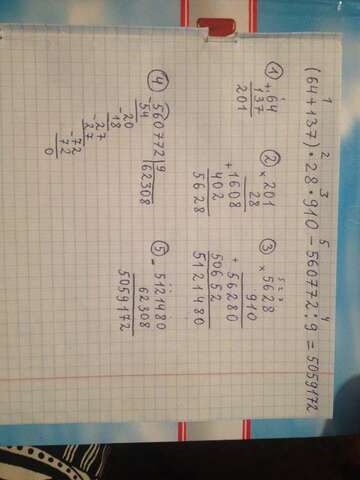 1 2 3 5 4
(64+137)·28·910-560772:9=5059172
1
+64
137
201
2
×201
28
+1608
402
5628
3
5 2 7
×5628
910
+56280
50652
5121480
4
-560772|9
54 62308
-20
18
-27
27
-72
72
0
5
-5121480
62308
5059172